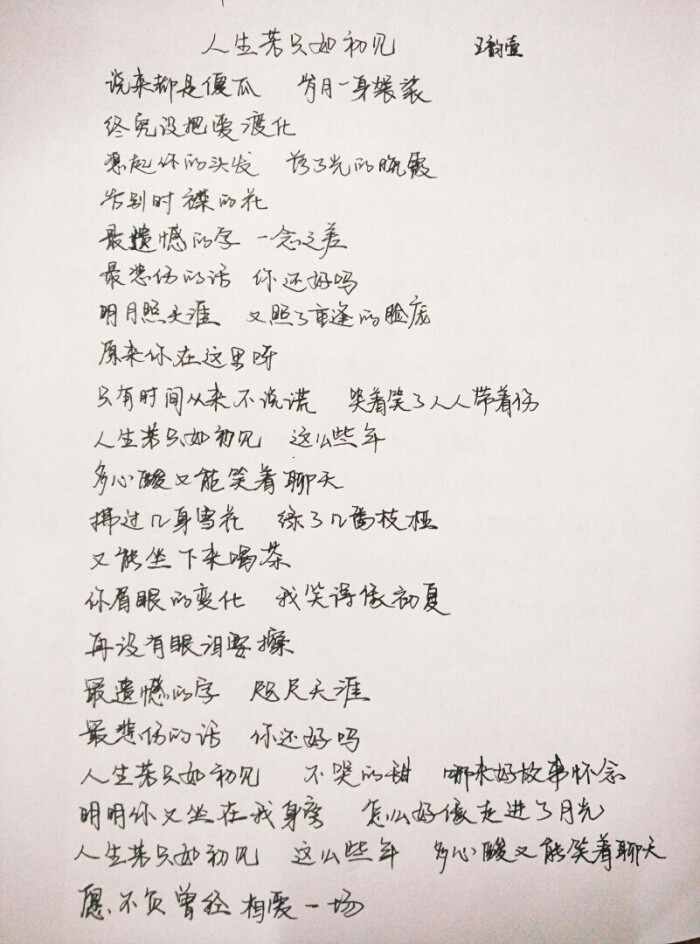 人生若只如初见 王韵壹
说来都是傻瓜 岁月一身袈裟
终究没把爱渡化
想起你的头发 落了光的晚霞
告别时襟的花
最遗憾的字 一念之差
最悲伤的话 你还好吗
明月照天涯 又照了重逢的脸庞
原来你在这里呀
只有时间从来不说谎 哭着笑了人人带着伤
人生若只如初见 这么些年
多心酸又能笑着聊天
拂过几身雪花 绿了几番枝桠
又能坐下来喝茶
你眉眼的变化 我笑得像初夏
再没有眼泪要擦
最遗憾的字 咫尺天涯
最悲伤的话 你还好吗
人生若只如初见 不哭的甜 哪来好故事怀念
明明你又坐在我身旁 怎么好像走进了月光
人生若只如初见 这么些年 多心酸又能笑着聊天
愿不负曾经相爱一场